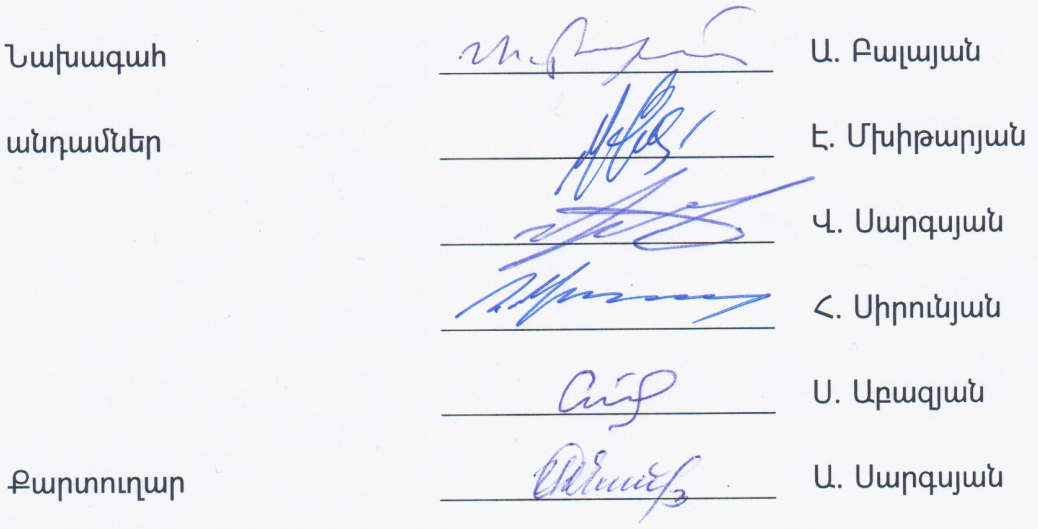 Նախագահ Ա. Բալայան
անդամներ Է. Մխիթարյան
Վ. Սարգսյան
Հ. Սիրունյան
Ս. Աբազյան
Քարտուղար Ա. Սարգսյան